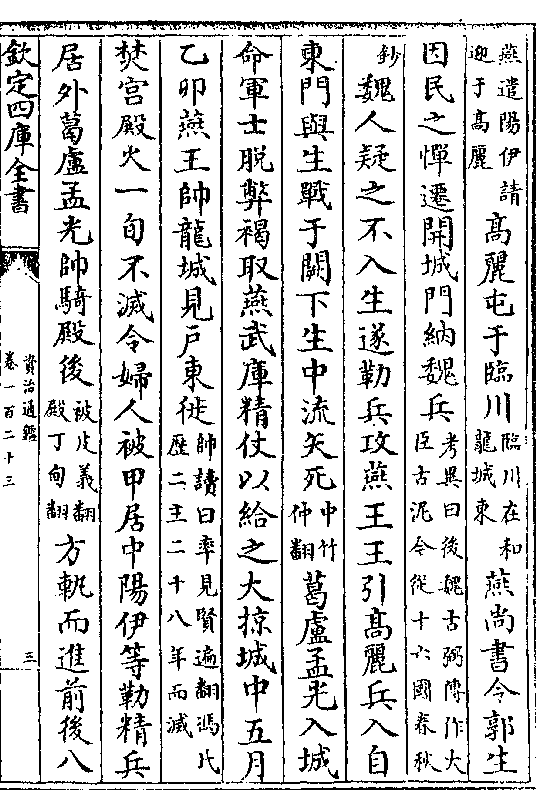 燕遣陽伊請
迎于高麗
高麗屯于臨川
臨川在和
龍城東
燕尚書令郭生
因民之憚遷開城門納魏兵
考異曰後魏古弼傳作大
臣古泥今從十六國春秋
鈔
魏人疑之不入生遂勒兵攻燕王王引高麗兵入自
東門與生戰于闕下生中流矢死
中竹
仲翻
葛盧孟光入城
命軍士脱弊褐取燕武庫精仗以給之大掠城中五月
乙卯燕王帥龍城見戸東徙
帥讀曰率見賢遍翻馮氏
歴二主二十八年而滅
焚宫殿火一旬不滅令婦人被甲居中陽伊等勒精兵
居外葛盧孟光帥騎殿後
被皮義翻
殿丁甸翻
方軌而進前後八
欽定四庫全書
資治通鑑
卷一百二十三
三